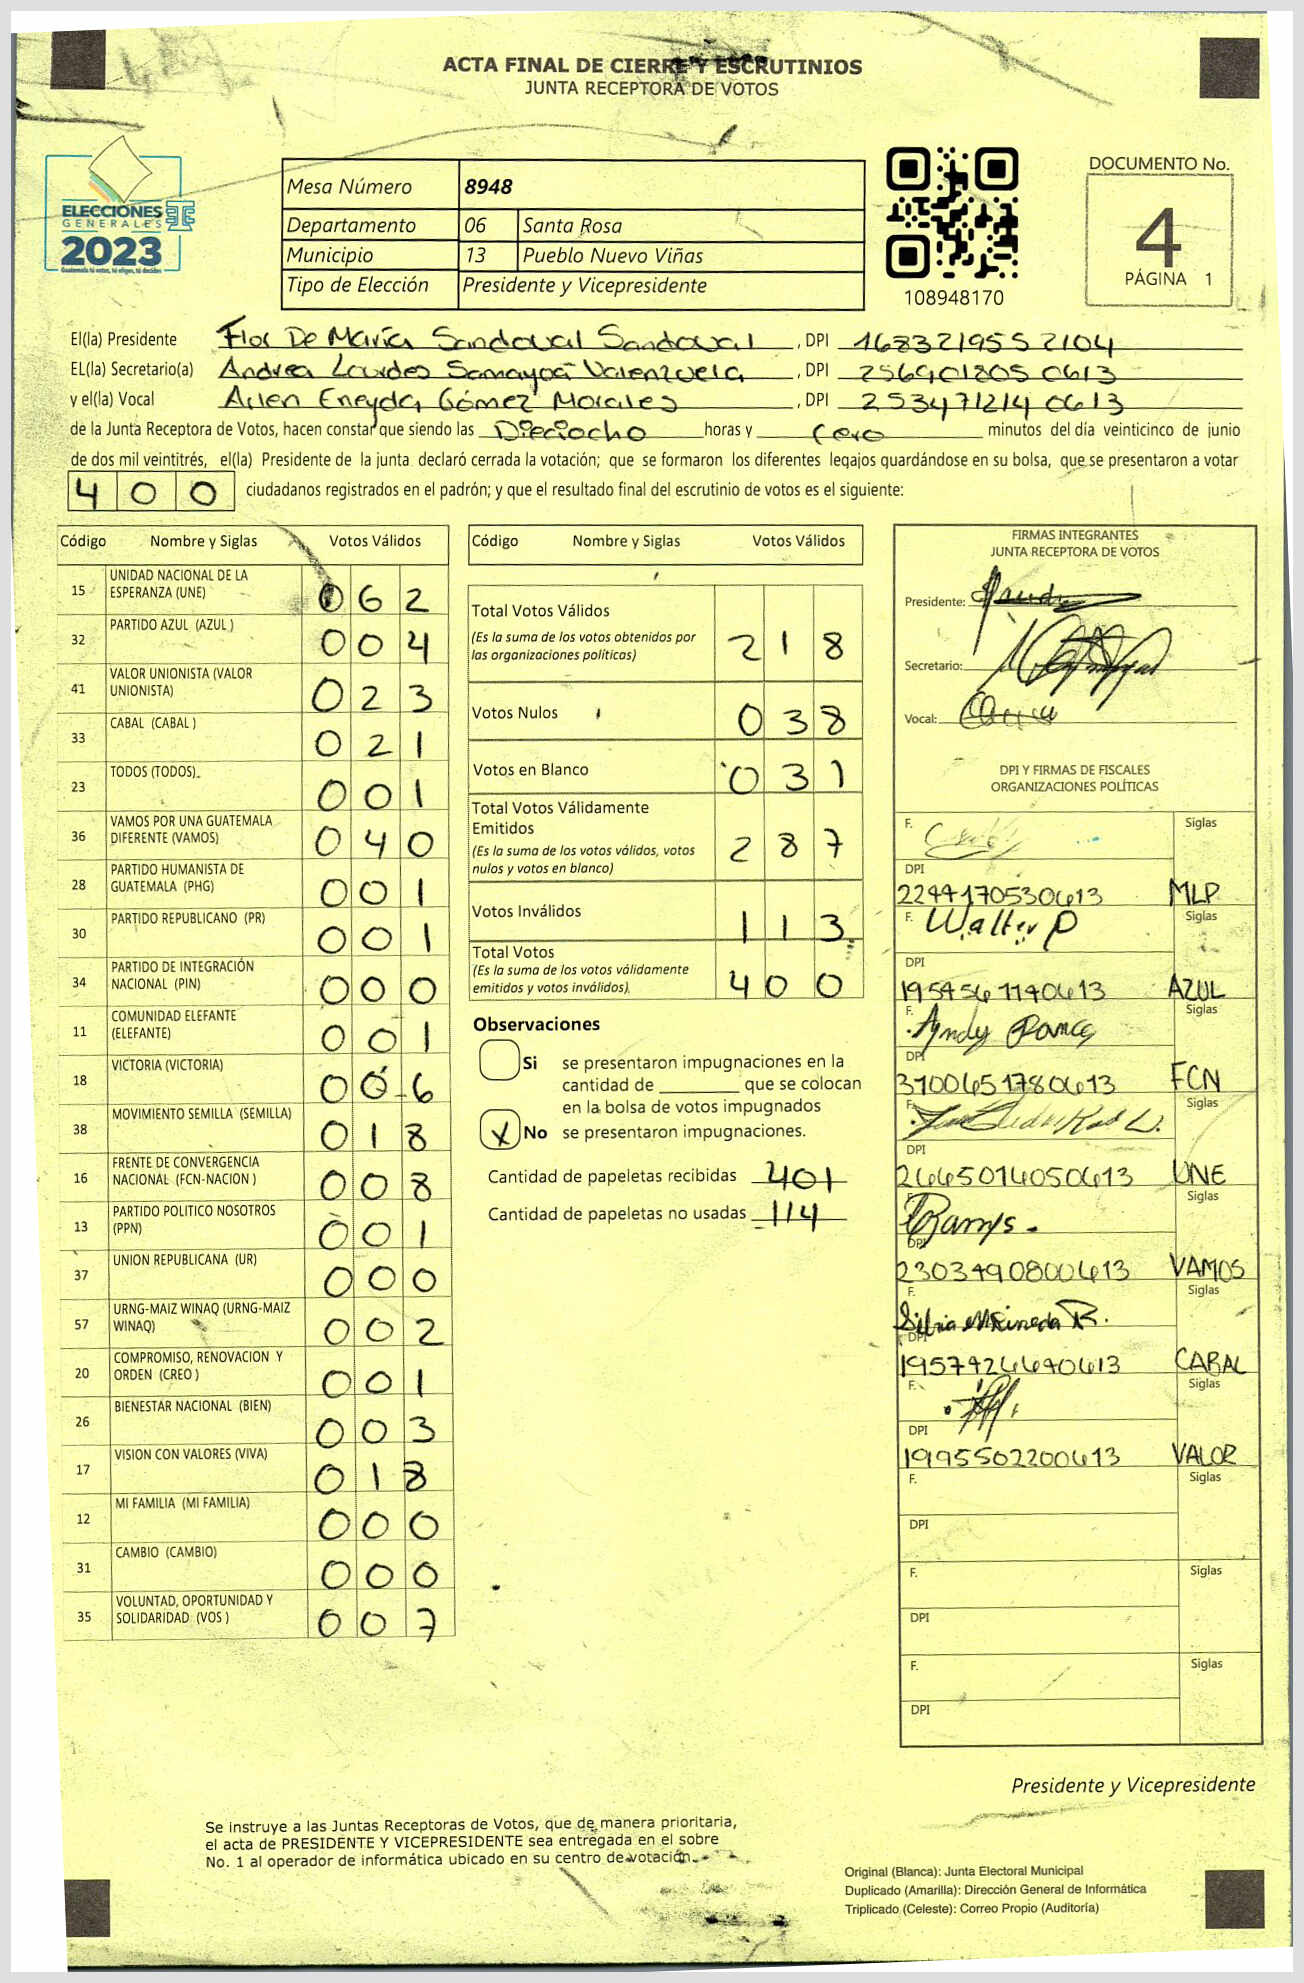 ACTA FINAL DE CIERRE Y ESCRUTINIOS
JUNTA RECEPTORA DE VOTOS
ELECCIONES
GENERALES
2023
Guatemala tú votas, tú eliges, tú decides
Mesa Número 8948
Departamento 06 Santa Rosa
Municipio 13 Pueblo Nuevo Viñas
Tipo de Elección Presidente y Vicepresidente
108948170
DOCUMENTO No.
4
PÁGINA 1
El(la) Presidente Flor De María Sandoval Sandoval, DPI 1683219552104
EL(la) Secretario(a) Andrea Lourdes Samayoa Valenzuela, DPI 256901805 0613
y el(la) Vocal Arlen Eneyda Gómez Morales, DPI 253471214 0613
de la Junta Receptora de Votos, hacen constar que siendo las Dieciocho horas y Cero minutos del día veinticinco de junio
de dos mil veintitrés, el(la) Presidente de la junta declaró cerrada la votación; que se formaron los diferentes legajos guardándose en su bolsa, que se presentaron a votar
400 ciudadanos registrados en el padrón; y que el resultado final del escrutinio de votos es el siguiente:
Código Nombre y Siglas Votos Válidos
15 UNIDAD NACIONAL DE LA ESPERANZA (UNE) 062
32 PARTIDO AZUL (AZUL ) 004
41 VALOR UNIONISTA (VALOR UNIONISTA) 023
33 CABAL (CABAL ) 021
23 TODOS (TODOS) 001
36 VAMOS POR UNA GUATEMALA DIFERENTE (VAMOS) 040
28 PARTIDO HUMANISTA DE GUATEMALA (PHG) 001
30 PARTIDO REPUBLICANO (PR) 001
34 PARTIDO DE INTEGRACIÓN NACIONAL (PIN) 000
11 COMUNIDAD ELEFANTE (ELEFANTE) 001
18 VICTORIA (VICTORIA) 006
38 MOVIMIENTO SEMILLA (SEMILLA) 018
16 FRENTE DE CONVERGENCIA NACIONAL (FCN-NACION ) 008
13 PARTIDO POLITICO NOSOTROS (PPN) 001
37 UNION REPUBLICANA (UR) 000
57 URNG-MAIZ WINAQ (URNG-MAIZ WINAQ) 002
20 COMPROMISO, RENOVACION Y ORDEN (CREO ) 001
26 BIENESTAR NACIONAL (BIEN) 003
17 VISION CON VALORES (VIVA) 018
12 MI FAMILIA (MI FAMILIA) 000
31 CAMBIO (CAMBIO) 000
35 VOLUNTAD, OPORTUNIDAD Y SOLIDARIDAD (VOS ) 007
Código Nombre y Siglas Votos Válidos
Total Votos Válidos 218
(Es la suma de los votos obtenidos por
las organizaciones políticas)
Votos Nulos 038
Votos en Blanco 031
Total Votos Válidamente
Emitidos 287
(Es la suma de los votos válidos, votos
nulos y votos en blanco)
Votos Inválidos 113
Total Votos 400
(Es la suma de los votos válidamente
emitidos y votos inválidos)
Observaciones
Si se presentaron impugnaciones en la
cantidad de ________ que se colocan
en la bolsa de votos impugnados
X No se presentaron impugnaciones.
Cantidad de papeletas recibidas 401
Cantidad de papeletas no usadas 114
FIRMAS INTEGRANTES
JUNTA RECEPTORA DE VOTOS
Presidente:
Secretario:
Vocal:
DPI Y FIRMAS DE FISCALES
ORGANIZACIONES POLÍTICAS
F. Siglas
DPI
2244170530613 MLP
F. Walter P Siglas
DPI
1954561140613 AZUL
F. Siglas
DPI
3700651780613 FCN
F. Siglas
DPI
2665014050613 UNE
F. Ramys. Siglas
DPI
2303490800613 VAMOS
F. Silvia Siglas
DPI
1957426640613 CABAL
F. Siglas
DPI
1995502200613 VALOR
F. Siglas
DPI
F. Siglas
DPI
F. Siglas
DPI
Presidente y Vicepresidente
Se instruye a las Juntas Receptoras de Votos, que de manera prioritaria,
el acta de PRESIDENTE Y VICEPRESIDENTE sea entregada en el sobre
No. 1 al operador de informática ubicado en su centro de votación.
Original (Blanca): Junta Electoral Municipal
Duplicado (Amarilla): Dirección General de Informática
Triplicado (Celeste): Correo Propio (Auditoría)